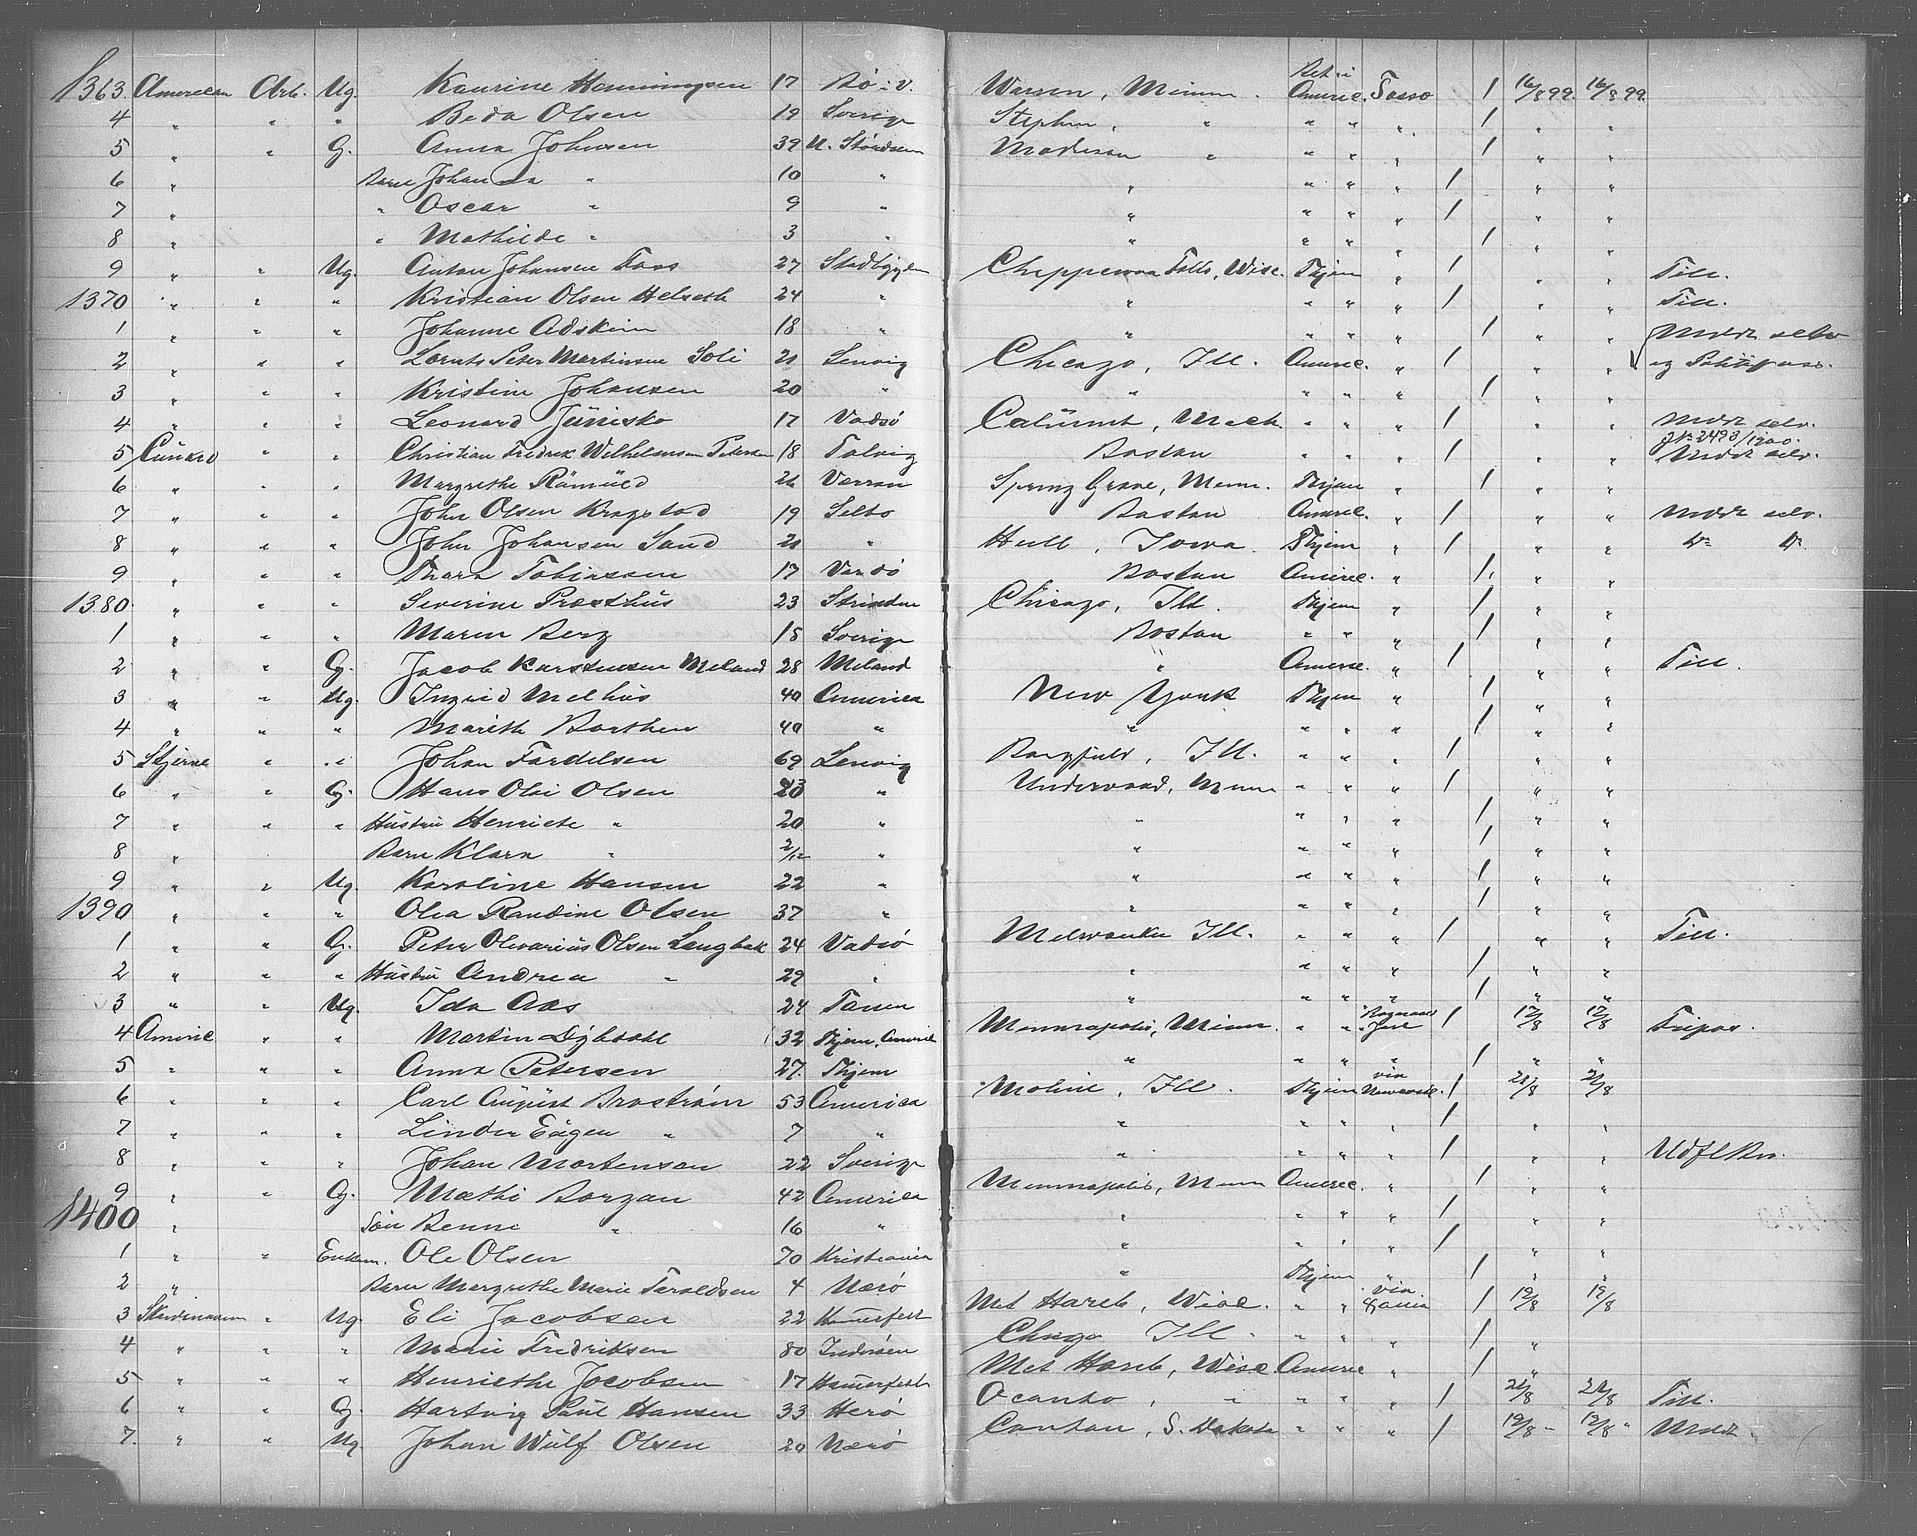 1363 American Arb. Ug. Kaurine Henningsen 17 Bø i V. Warren, Minn. Bet. i Americ. Tasso / 16/8 99. 16/8 99.
4 " " " Beda Olsen 19 Sverige Stephen, " " " " / " "
5 " " G. Anna Johnsen 39 N. Stördalen Madison " " " " / " "
6 " Barn Johanna " 10 " " " " " / " "
7 " " Oscar " 9 " " " " " / " "
8 " " Mathilde " 3 " " " " " / " "
9 " " Ug. Anton Johansen Foss 27 Stadbygden Chippewa Falls, Wisc. Thjem " / " " Till.
1370 " " " Kristian Olsen Helseth 24 " " " " " / " " Till.
1 " " " Johanne Adskim 18 " " " " " / " "
2 " " " Lornts Peter Martinsen Soli 21 Lenvig Chicago, Ill. Americ. " / " " Meldt selv og Politipas.
3 " " " Kristine Johansen 20 " " " " " / " "
4 " " " Leonard Junisko 17 Vadsö Calumet, Mich. " " " / " " Meldt selv. J. No 2493/1900.
5 Cunard " " Christian Fredrik Wilhelmsen Petersen 18 Talvig Boston " " " / " " Meldt selv.
6 " " " Margrethe Römüld 26 Verran Spring Grove, Minn. Thjem " / " "
7 " " " John Olsen Kragstad 19 Selbo Boston Americ. " / " " Meldt selv.
8 " " " John Johansen Sand 21 " Hull, Iowa. Thjem " / " " Do Do
9 " " " Thora Tobiassen 17 Vardö Boston Americ. " / " "
1380 " " " Severine Presthus 23 Strinden Chicago, Ill. Thjem " / " "
1 " " " Maren Berg 18 Sverige Boston " " " / " "
2 " " G. Jacob Karstensen Meland 28 Meland " Americ. " / " " Till.
3 " " Ug. Ingrid Melhus 40 America New York Thjem " / " "
4 " " " Marith Borthen 40 " " " " " / " "
5 Stjerne " " Johan Fardelsen 69 Lenvig " " " / " "
6 " " G. Hans Olai Olsen 23 " Underwood, Minn " " " / " "
7 " " " Hustru Henriete " 20 " " " " " / " "
8 " Barn Klara " 2/12 " " " " " / " "
9 " " Ug Karoline Hansen 22 " " " " " / " "
1390 " " " Olea Randine Olsen 37 " " " " " / " "
1 " " G. Peter Olivarius Olsen Langbak 24 Vadsö Milwaukee Ill. " " " / " " Till.
2 " " " Hustru Andrea " 29 " " " " " / " "
3 " " Ug. Ida Aas 24 Tanen " " " " / " "
4 Americ " " Martin Dybdahl 32 Thjem, Americ Minneapolis, Minn. " " Ragnvald Jarl / 17/8 17/8 Fripas.
5 " " " Anna Petersen 27. Thjem " " " " / " "
6 " " " Carl August Broström 53 America Moline, Ill. Thjem via Newcastl. / 21/8 21/8
7 " " " Linder Eugen " 7 " " " " " / " "
8 " " " Johan Mortensen 22 Sverige " " " " / " " Udfl Bev.
9 " " G. Mathi Borgan 42 America Minneapolis, Minn Americ. " / " "
1400 " Sön Benni " 16 " " " " " / " "
1 " " Enkem. Ole Olsen 70 Kristiania " " " " / " "
2 " Barn Margrethe Marie Taraldsen 4 Nærö " Thjem " / " "
3 Skandinavien " Ug. Eli Jacobsen 22 Hamerfest Met Horeb, Wisc. " " via / 19/8 19/8
4 " " " Marie Fredriksen 80 Inderöen Chicago Ill. " " " / " "
5 " " " Henriethe Jacobsen 17 Hamerfest Met Horeb, Wisc Americ " / "
6 " " G. Hartvig Paul Hansen 33 Herö Oconto, " " " " / 21/8 21/8 Till.
7. " " Ug Johan Wulf Olsen 20 Nærö Canton, S. Dakota " " " / 19/8 " 19/8 " Meldt.